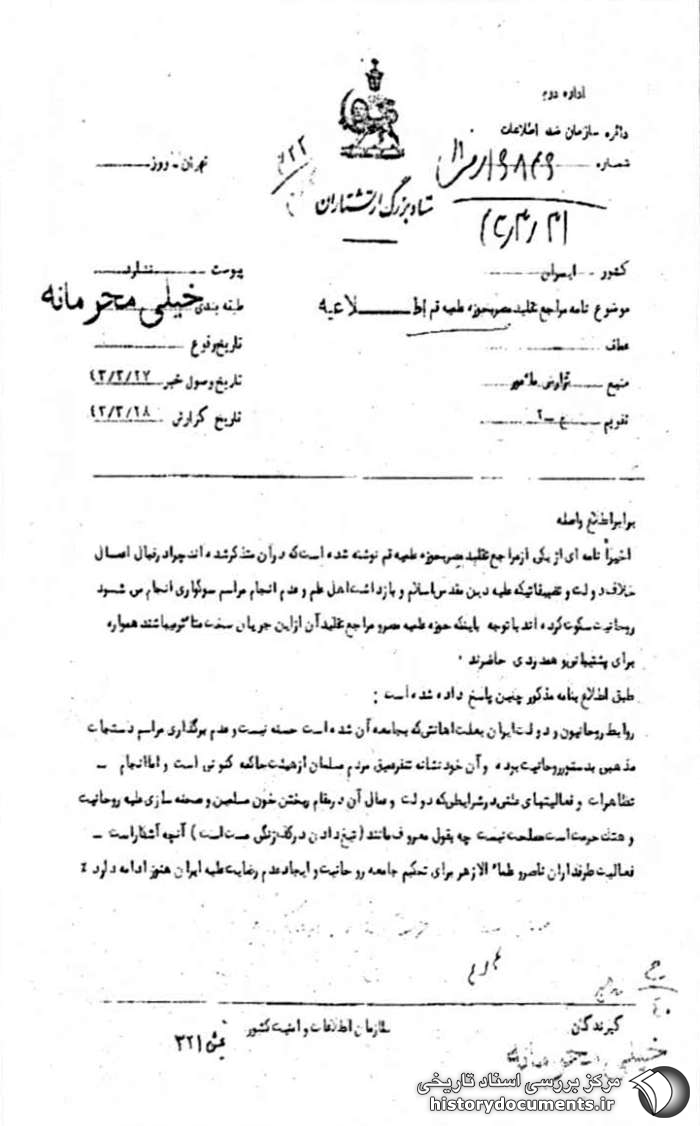 اداره دوم
دائره سازمان ضد اطلاعات
شماره
تهران - روز
ستاد بزرگ ارتشتاران
کشور - ایران
پیوست - ندارد
موضوع نامه مراجع تقلید مصر بحوزه علمیه قم اطلاعیه
طبقه بندی خیلی محرمانه
عطف
تاریخ وقوع
منبع - گزارش مأمور
تاریخ وصول خبر ۴۳/۳/۲۷
تقویم - ج - ۲
تاریخ گزارش ۴۳/۳/۲۸
برابر اطلاع واصله
اخیراً نامه ای از یکی از مراجع تقلید مصر بحوزه علمیه قم نوشته شده است که در آن متذکر شده اند چرا در قبال اعمال
خلاف دولت و تضییقاتیکه علیه دین مقدس اسلام و بازداشت اهل علم و عدم انجام مراسم سوگواری انجام می شود
روحانیت سکوت کرده اند با توجه باینکه حوزه علمیه مصر و مراجع تقلید آن از این جریان سخت متأثر میباشند همواره
برای پشتیبانی و همدردی حاضرند .
طبق اطلاع بنامه مذکور چنین پاسخ داده شده است :
روابط روحانیون و دولت ایران بعلت اهانتی که بجامعه آن شده است حسنه نیست و عدم برگذاری مراسم دستجات
مذهبی بدستور روحانیت بوده و آن خود نشانه تنفر عمیق مردم مسلمان از هیئت حاکمه کنونی است و اما انجام -
تظاهرات و فعالیتهای علنی در شرایطی که دولت و عمال آن در مقام ریختن خون مسلمین و صحنه سازی علیه روحانیت
و هتک حرمت است مصلحت نیست چه بقول معروف مانند ( تیغ دادن در کف زنگی مست است ) آنچه آشکار است -
فعالیت طرفداران ناصر و علماء الازهر برای تحکیم جامعه روحانیت و ایجاد عدم رضایت علیه ایران هنوز ادامه دارد
گیرندگان
سازمان اطلاعات و امنیت کشور
۳۲۱
خیلی محرمانه
مرکز بررسی اسناد تاریخی
historydocuments.ir